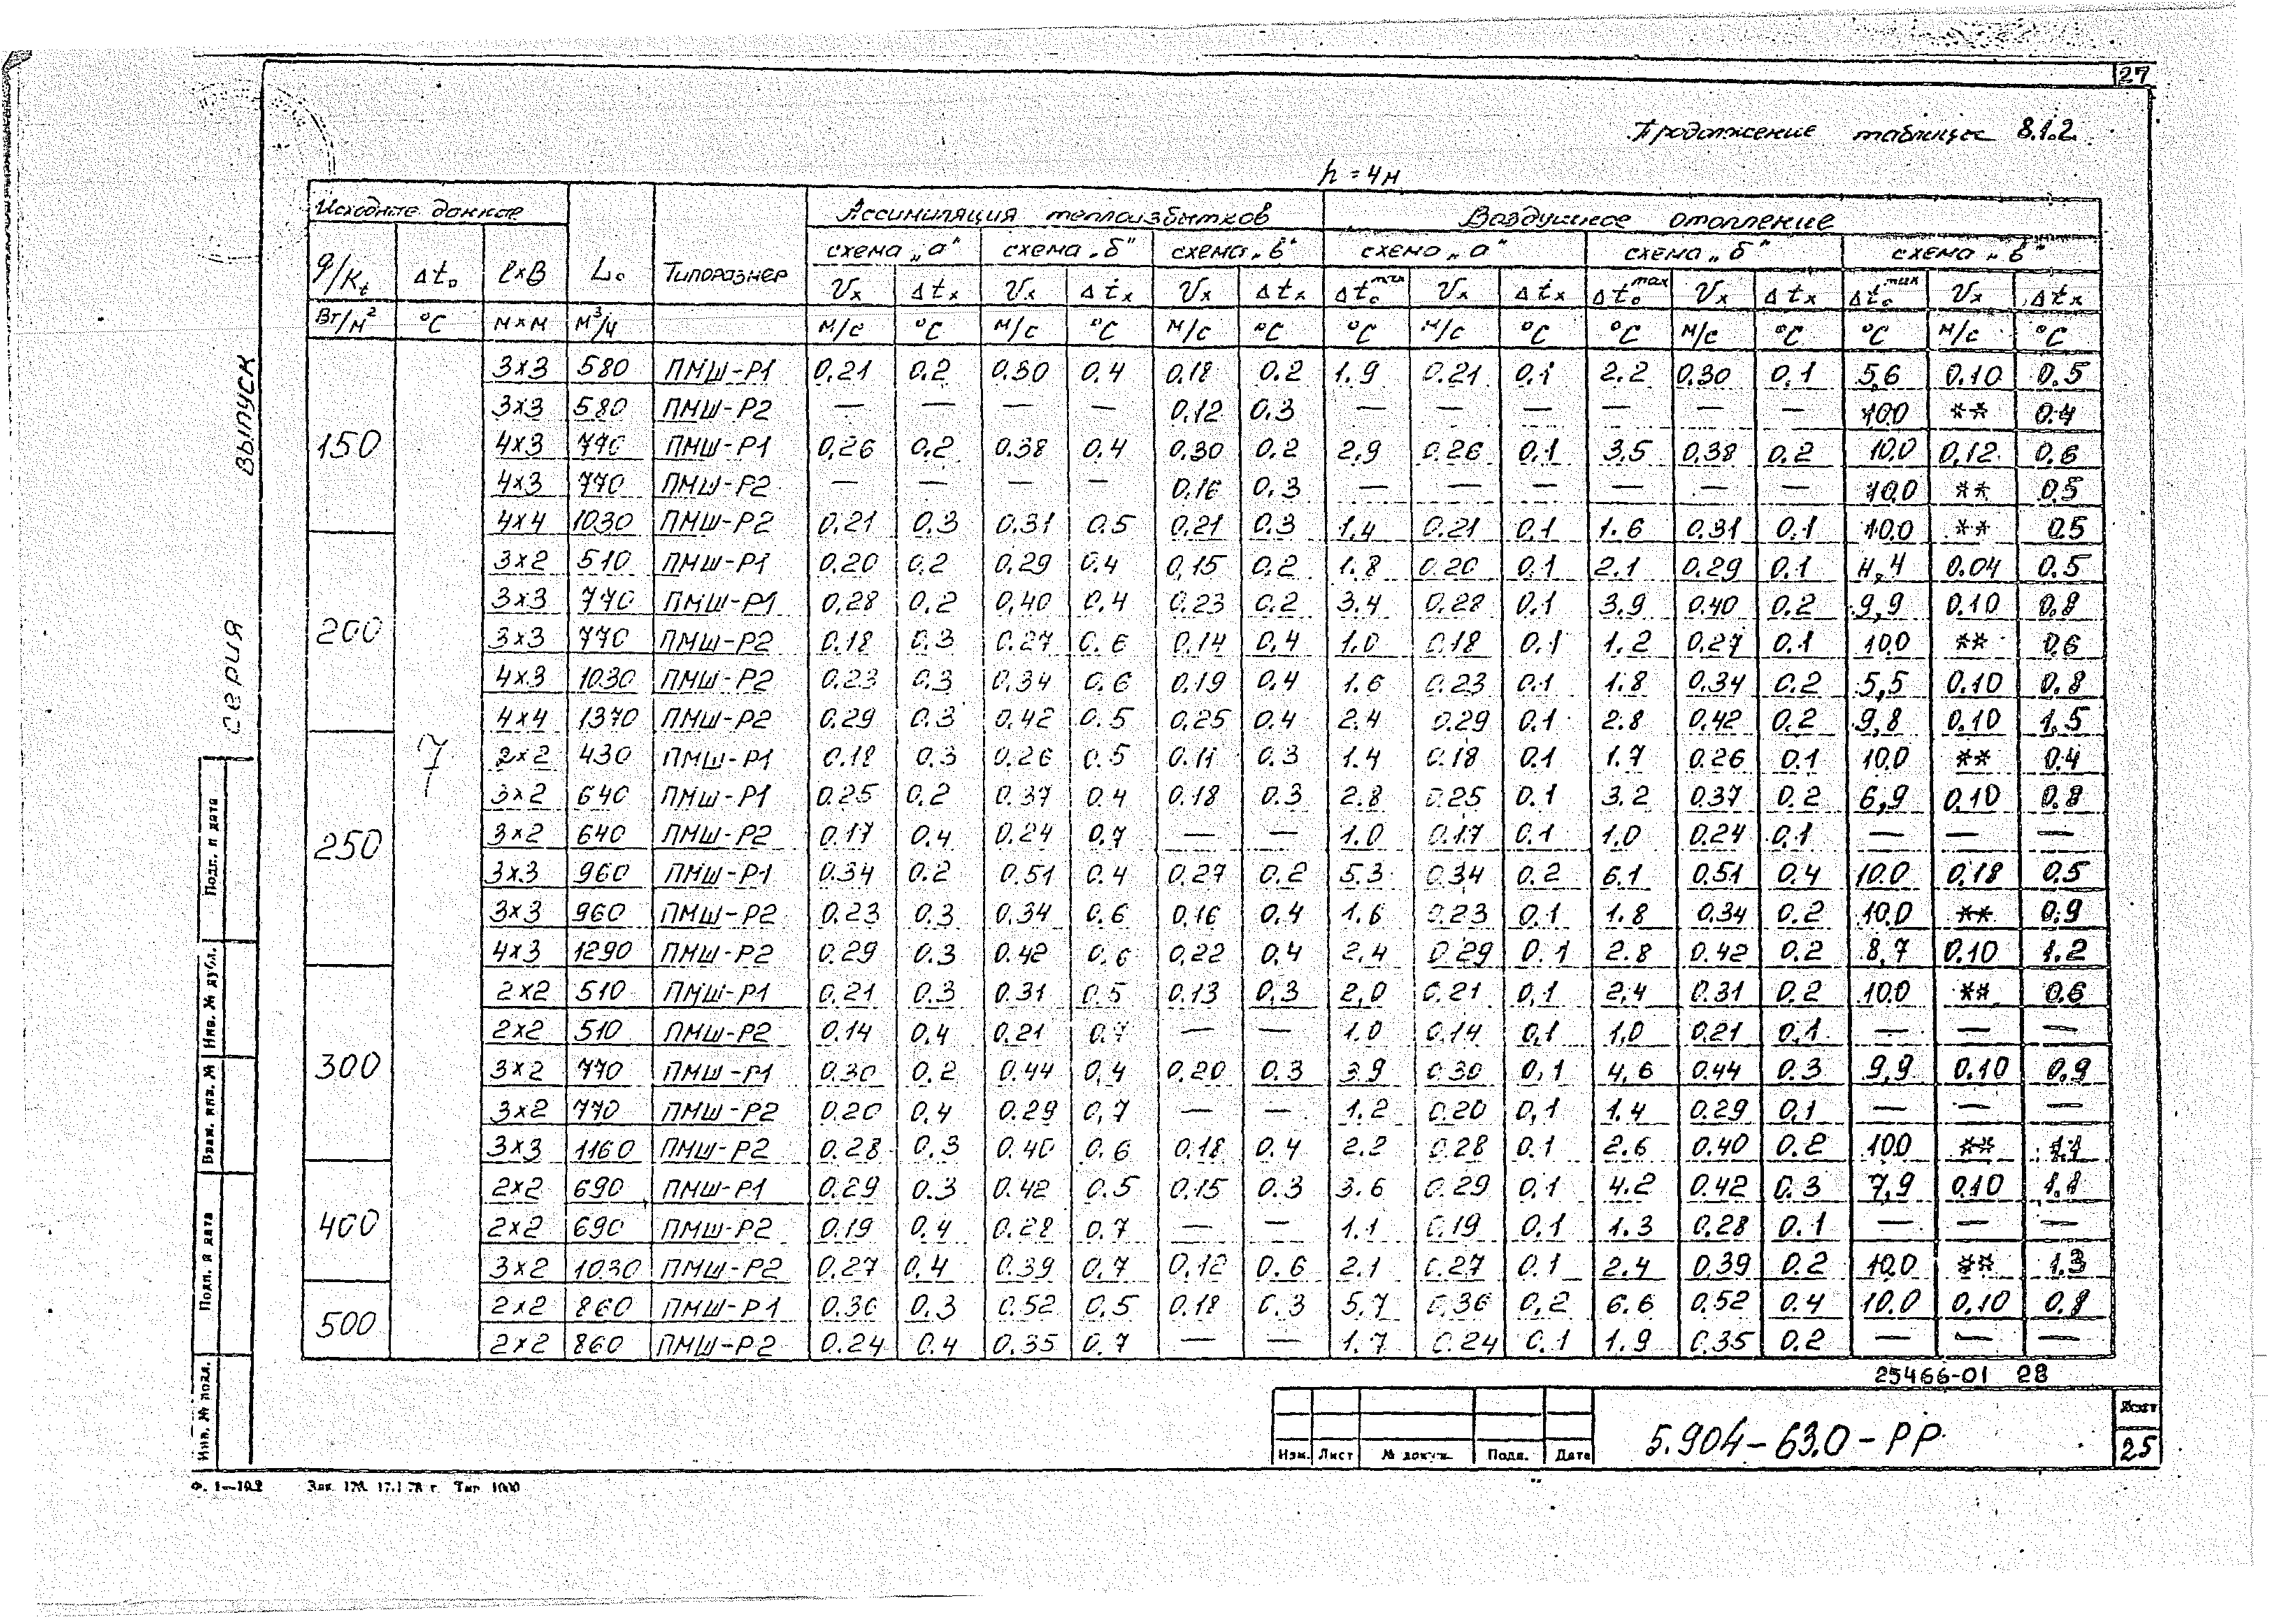 27
Продолжение таблицы 8.1.2.
h = 4м
Исходные данные L₀ Типоразмер Ассимиляция теплоизбытков Воздушное отопление
схема „а" схема „б" схема „в" схема „а" схема „б" схема „в"
q/Kt Δt₀ l×B Vx Δtx Vx Δtx Vx Δtx Δt₀max Vx Δtx Δt₀max Vx Δtx Δt₀max Vx Δtx
Вт/м² °С м×м м³/ч м/с °С м/с °С м/с °С °С м/с °С °С м/с °С °С м/с °С
150 7 3×3 580 ПМШ-Р1 0.21 0.2 0.30 0.4 0.18 0.2 1.9 0.21 0.1 2.2 0.30 0.1 5,6 0.10 0.5
3×3 580 ПМШ-Р2 — — — — 0.12 0.3 — — — — — — 10.0 ** 0.4
4×3 770 ПМШ-Р1 0,26 0.2 0.38 0.4 0.30 0.2 2.9 0.26 0.1 3.5 0,38 0.2 10.0 0,12 0.6
4×3 770 ПМШ-Р2 — — — — 0.16 0.3 — — — — — — 10.0 ** 0.5
4×4 1030 ПМШ-Р2 0.21 0.3 0.31 0.5 0.21 0.3 1.4 0.21 0.1 1.6 0.31 0.1 10.0 ** 0.5
200 3×2 510 ПМШ-Р1 0.20 0.2 0.29 0.4 0,15 0.2 1.8 0.20 0.1 2.1 0.29 0.1 4,4 0.04 0.5
3×3 770 ПМШ-Р1 0,28 0.2 0,40 0.4 0.23 0.2 3.4 0.28 0.1 3.9 0.40 0.2 9,9 0.10 0.8
3×3 770 ПМШ-Р2 0.18 0.3 0.27 0.6 0.14 0.4 1.0 0.18 0.1 1.2 0.27 0.1 10.0 ** 0.6
4×3 1030 ПМШ-Р2 0.23 0.3 0.34 0.6 0.19 0.4 1.6 0.23 0.1 1.8 0.34 0.2 5,5 0.10 0.8
4×4 1370 ПМШ-Р2 0.29 0.3 0.42 0.5 0.25 0.4 2.4 0.29 0.1 2.8 0.42 0.2 9,8 0.10 1.5
250 2×2 430 ПМШ-Р1 0.18 0.3 0.26 0.5 0.11 0.3 1.4 0.18 0.1 1.7 0.26 0.1 10.0 ** 0.4
3×2 640 ПМШ-Р1 0.25 0.2 0.37 0.4 0.18 0.3 2.8 0.25 0.1 3.2 0.37 0.2 6,9 0.10 0.8
3×2 640 ПМШ-Р2 0.17 0.4 0.24 0.7 — — 1.0 0.17 0.1 1.0 0.24 0.1 — — —
3×3 960 ПМШ-Р1 0.34 0.2 0.51 0.4 0.27 0.2 5.3 0.34 0.2 6.1 0.51 0.4 10.0 0.18 0.5
3×3 960 ПМШ-Р2 0.23 0.3 0.34 0.6 0.16 0.4 1.6 0.23 0.1 1.8 0.34 0.2 10.0 ** 0.9
4×3 1290 ПМШ-Р2 0.29 0.3 0.42 0.6 0,22 0.4 2.4 0.29 0.1 2.8 0.42 0.2 8,7 0.10 1.2
300 2×2 510 ПМШ-Р1 0.21 0.3 0.31 0.5 0.13 0,3 2,0 0.21 0,1 2,4 0.31 0.2 10.0 ** 0.6
2×2 510 ПМШ-Р2 0.14 0.4 0.21 0.7 — — 1.0 0.14 0,1 1,0 0.21 0.1 — — —
3×2 770 ПМШ-Р1 0.30 0.2 0.44 0,4 0,20 0.3 3.9 0.30 0,1 4,6 0.44 0.3 9,9 0.10 0.9
3×2 770 ПМШ-Р2 0.20 0.4 0.29 0,7 — — 1.2 0.20 0,1 1.4 0.29 0,1 — — —
3×3 1160 ПМШ-Р2 0.28 0.3 0.40 0.6 0.18 0.4 2.2 0.28 0.1 2.6 0.40 0.2 10.0 ** 1.1
400 2×2 690 ПМШ-Р1 0.29 0.3 0.42 0.5 0.15 0.3 3.6 0.29 0,1 4.2 0.42 0.3 7,9 0.10 1.1
2×2 690 ПМШ-Р2 0.19 0.4 0.28 0.7 — — 1.1 0.19 0.1 1.3 0.28 0.1 — — —
3×2 1030 ПМШ-Р2 0.27 0.4 0.39 0.7 0.12 0.6 2.1 0.27 0.1 2.4 0.39 0.2 10.0 ** 1.3
500 2×2 860 ПМШ-Р1 0.36 0.3 0.52 0.5 0.18 0.3 5.7 0.36 0,2 6.6 0.52 0.4 10.0 0.10 0.8
2×2 860 ПМШ-Р2 0.24 0.4 0.35 0.7 — — 1.7 0.24 0.1 1.9 0.35 0.2 — — —
25466-01 28
Изм. Лист № докум. Подп. Дата
5.904-63.0-РР
Лист
25
выпуск
серия
Подп. и дата
Инв. № дубл.
Взам. инв. №
Подп. и дата
Инв. № подл.
Ф. 1—10.2 Зак. 176. 17.1.78 г. Тир. 1000